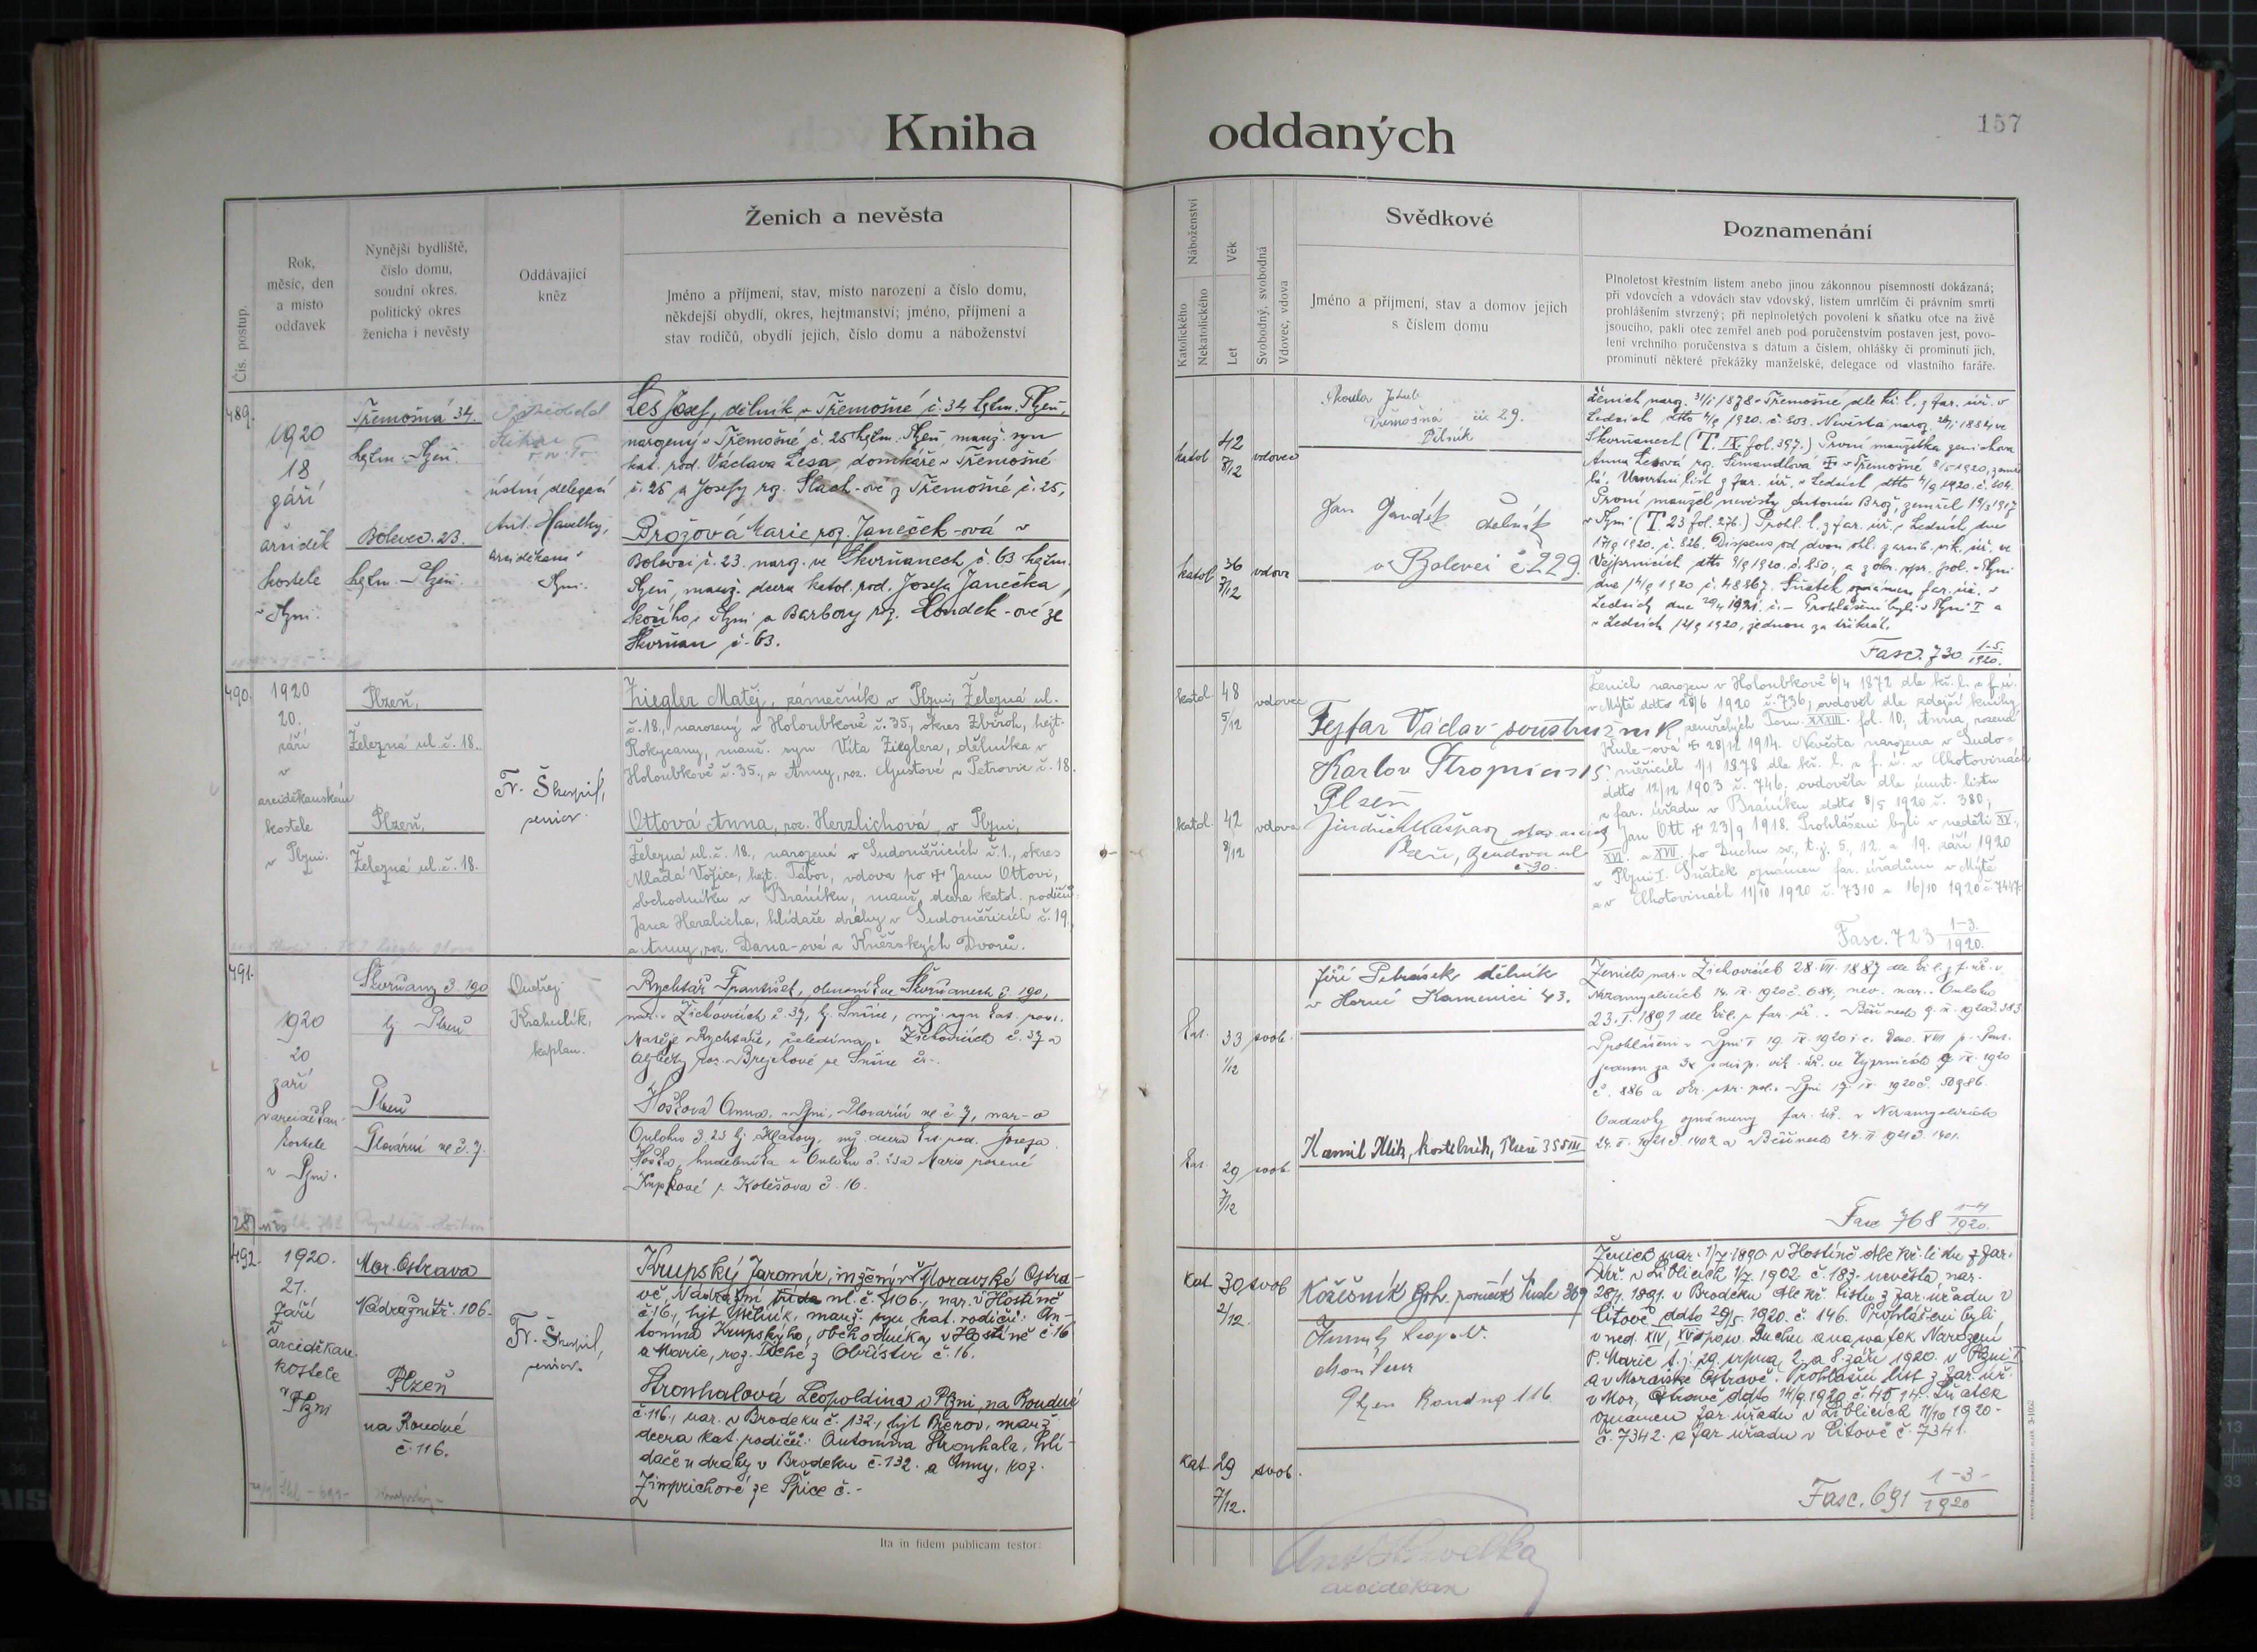 Kniha oddaných
157
Čís. postup.
Rok,
měsíc, den
a místo
oddavek
Nynější bydliště,
číslo domu,
soudní okres,
politický okres
ženicha i nevěsty
Oddávající
kněz
Ženich a nevěsta
Jméno a příjmení, stav, místo narození a číslo domu,
někdejší obydlí, okres, hejtmanství; jméno, příjmení a
stav rodičů, obydlí jejich, číslo domu a náboženství
Náboženství
Katolického
Nekatolického
Věk
Let
Svobodný, svobodná
Vdovec, vdova
Svědkové
Jméno a příjmení, stav a domov jejich
s číslem domu
Poznamenání
Plnoletost křestním listem anebo jinou zákonnou písemností dokázaná;
při vdovcích a vdovách stav vdovský, listem umrlčím či právním smrti
prohlášením stvrzený; při neplnoletých povolení k sňatku otce na živě
jsoucího, pakli otec zemřel aneb pod poručenstvím postaven jest, povo-
lení vrchního poručenstva s datum a číslem, ohlášky či prominutí jich,
prominutí některé překážky manželské, delegace od vlastního faráře.
489.
1920
18
září
arciděk
kostele
v Plzni.
Třemošná 34.
hejtm. Plzeň.
Bolevec. 23.
hejtm. Plzeň.
ústní delegací
Ant. Havelky,
arciděkana
Plzni.
Les Josef, dělník v Třemošné č. 34 hejtm. Plzeň,
narozený v Třemošné č. 25 hejtm. Plzeň, manž. syn
kat. rod. Václava Lesa, domkáře v Třemošné
č. 25 a Josefy roz. Šlach-ové z Třemošné č. 25,
Brožová Marie roz. Janeček-ová v
Bolevci č. 23. naroz. ve Skvrňanech č. 63 hejtm.
Plzeň, manž. dcera katol. rod. Josefa Janečka,
kočího v Plzni a Barbory roz. Loudek-ové ze
Skvrňan č. 63.
katol 42 7/12 vdovec
katol. 36 7/12 vdova
Třemošná čč. 29.
Dělník
Jan Jandík dělník
v Bolevci č 229.
Ženich naroz. 31/1 1878 v Třemošné dle kř. l. z far. úř. v
Ledcích ddto 4/9 1920. č. 803. Nevěsta naroz. 28/1 1884 ve
Skvrňanech (T. IX. fol. 397.) První manželka ženichova
Anna Lesová roz. Šimandlová ✠ v Třemošné 8/5 1920,
Úmrtní list z far. úř. v Ledcích ddto 4/9 1920. č. 804.
První manžel nevěsty Antonín Brož, zemřel 19/3 1917
v Plzni (T. 23 fol. 276.) Prohl. l. z far. úř. v Ledcích dne
17/9 1920. č. 826. Dispens od dvou ohl. z arcib. vik. úř. ve
Vejprnicích ddto 9/9 1920. č. 850., a z okr. spr. pol. v Plzni
dne 14/9 1920 č. 48867. Sňatek oznámen far. úř. v
Ledcích dne 29/4 1921. č. – Prohlášení byli v Plzni I a
v Ledcích 12/9 1920, jednou za třikrát.
Fasc. 730 1-5./1920.
490.
1920
20.
září
v
arciděkanském
kostele
v Plzni.
Plzeň,
Železná ul. č. 18.
Plzeň,
Železná ul. č. 18.
Fr. Škorpil,
senior.
Ziegler Matěj, zámečník v Plzni, Železná ul.
č. 18., narozený v Holoubkově č. 35, okres Zbiroh, hejt.
Rokycany, manž. syn Víta Zieglera, dělníka v
Holoubkově č. 35., a Anny, roz. Gustové z Petrovic č. 18.
Ottová Anna, roz. Herzlichová, v Plzni,
Železná ul. č. 18., narozená v Sudoměřicích č. 1., okres
Mladá Vožice, hejt. Tábor, vdova po ✠ Janu Ottovi,
obchodníku v Braníku, manž. dcera katol. rodičů:
Jana Herzlicha, hlídače dráhy v Sudoměřicích č. 19.,
a Anny, roz. Dana-ové z Kněžských Dvorů.
katol. 48 5/12 vdovec
katol. 42 8/12 vdova
Fejfar Václav soustružník
Karlov
Plzeň
Jindřich Kašpar
Plzeň,
č 30.
Ženich narozen v Holoubkově 6/4 1872 dle kř. l. z f. ú.
v Mýtě ddto 28/6 1920 č. 736; ovdověl dle zdejší knihy
zemřelých Tom. XXXIII. fol. 10; Anna, rozená
Kule-ová ✠ 28/12 1914. Nevěsta narozena v Sudo-
měřicích 1/1 1878 dle kř. l. z f. ú. v Chotovinách
ddto 12/12 1903 č. 746; ovdověla dle úmrt. listu
z far. úřadu v Braníku ddto 8/5 1920 č. 380;
Jan Ott ✠ 23/9 1918. Prohlášeni byli v neděli XV.,
XVI. a XVII. po Duchu sv., t. j. 5., 12. a 19. září 1920
v Plzni I. Sňatek oznámen far. úřadům v Mýtě
a v Chotovinách 11/10 1920 č. 7310 a 16/10 1920 č. 7447.
Fasc. 723 1-3./1920.
491.
1920
20
září
v arciděkan.
kostele
v Plzni.
Skvrňany č. 190
hj Plzeň
Plzeň
Plovární ul. č. 7.
Ondřej
Krahulík,
kaplan.
Rychtář František, ve Skvrňanech č. 190,
nar. v Žichovicích č. 37, hj. Sušice, mž. syn kat. rod.
Matěje Rychtáře, čeledína v Žichovicích č. 37 a
Alžběty roz. Brejchové ze Sušice č. –.
Hošková Anna, v Plzni, Plovární ul. č. 7, nar. v
č. 23 hj. Klatovy, mž. dcera kat. rod. Josefa
Hoška, hudebníka v č. 23 a Marie rozené
z Kotěšova č. 16.
kat. 33 1/12 svob.
kat. 29 7/12 svob.
Jiří Petrášek dělník
v Horní Kamenici 43.
Kamil Mlih, kostelník, Plzeň 355 III
Ženich nar. v Žichovicích 28. VII. 1887 dle kř. l. z f. úř. v
Nezamyslicích 14. IX. 1920 č. 684, nev. nar. v
23. I. 1891 dle kř. l. z far. úř. v Běšinech 9. IX. 1920 č. 383.
Prohlášeni v Plzni I 19. IX. 1920
jednou za 3x z disp. vik. úř. ve Vejprnicích 9 IX. 1920
č. 886 a okr. spr. pol. v Plzni 17. IX. 1920 č. 50986.
Oddavky oznámeny far. úř. v Nezamyslicích
24. II. 1921 č. 1402 a Běšinech 24. II. 1921 č. 1401.
Fasc 768 1-4/1920.
492.
1920.
21.
Září
v
arciděkan.
kostele
v
Plzni
Mor. Ostrava
Nádražní tř. 106.
Plzeň
na Roudné
č. 116.
Fr. Škorpil,
senior.
Krupský Jaromír, inženýr v Moravské Ostra-
vě, Nádražní třída ul. č. 1106., nar. v Hostíně
č. 16., hejt. Mělník, manž. syn kat. rodičů: An-
tonína Krupského, obchodníka v Hostíně č. 16
a Marie, roz. Tiché z Obříství č. 16.
Stronhalová Leopoldina v Plzni, na Roudné
č. 116., nar. v Brodeku č. 132., hejt Přerov, manž
dcera kat. rodičů: Antonína Stronhala, hlí-
dače u dráhy v Brodeku č. 132. a Anny, roz.
Zimprichové ze Špice č. –
kat. 30 2/12. svob
kat. 29 7/12. svob.
Kožešník Boh. poručík 
Monteur
Plzen Roudná 116
Ženich nar. 1/7 1890 v Hostíně dle kř. listu z far.
úř. v Liblicích 1/7. 1902 č. 183. nevěsta nar.
28/1. 1891. v Brodeku dle kř. listu z far. úřadu v
Citově ddto 29/5. 1920. č. 146. Prohlášeni byli
v ned. XIV, XV po sv. Duchu a na svátek Narození
P. Marie t. j. 29. srpna, 2. a 8. září 1920. v Plzni I
a v Moravské Ostravě. Prohlášší list z far. úř.
v Mor. Ostravě ddto 14/9 1920 č. 4514. Sňatek
oznámen far. úřadu v Liblicích 11/10 1920-
č. 7342. a far úřadu v Citově č. 7341.
Fasc. 691 1-3-/1920
Ita in fidem publicam testor:
Ant Havelka
arciděkan